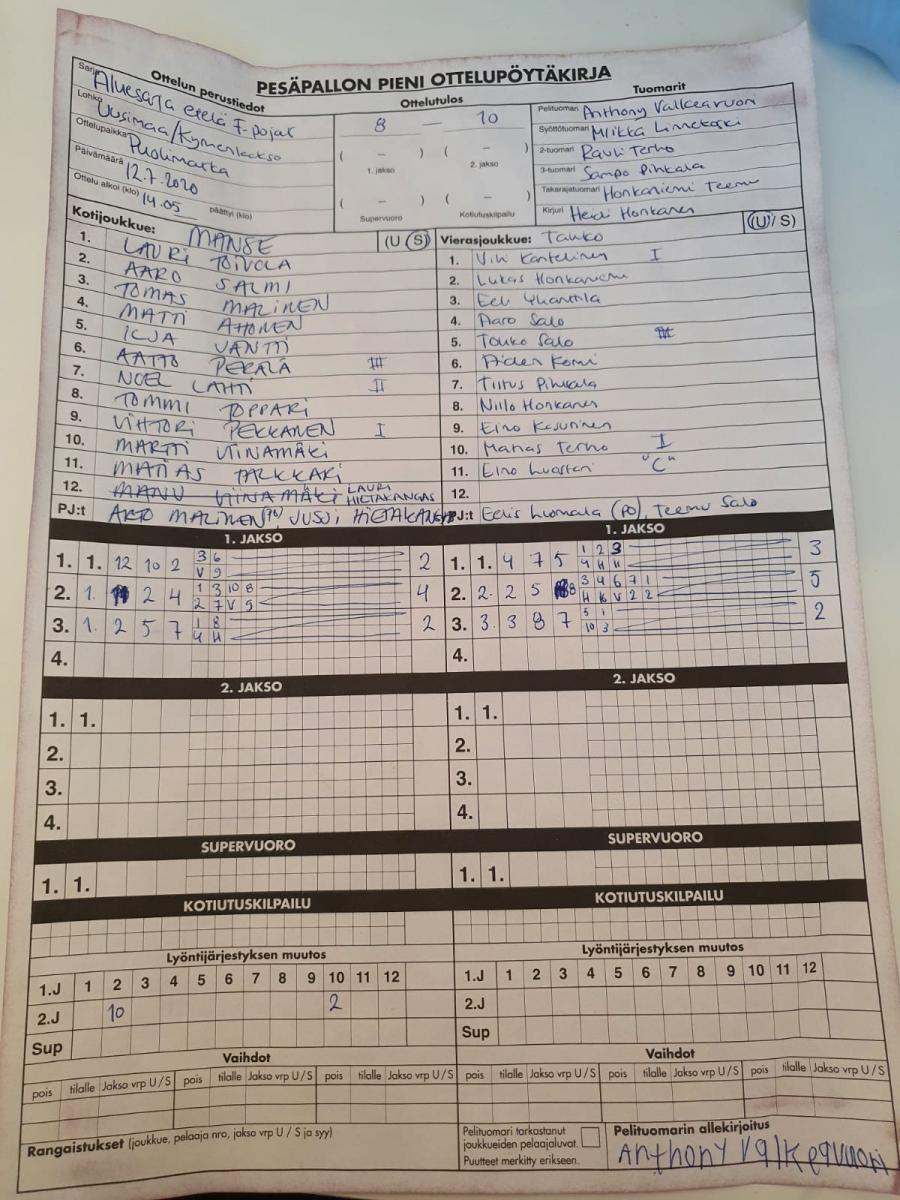 PESÄPALLON PIENI OTTELUPÖYTÄKIRJA
Ottelun perustiedot
Sarja Aluesarja etelä F-pojat
Lohko Uusimaa/Kymenlaakso
Ottelupaikka Puolimatka
Päivämäärä 12.7.2020
Ottelu alkoi (klo) 14.05 päättyi (klo)
Ottelutulos
8 — 10
( – ) ( – )
1. jakso 2. jakso
( – ) ( – )
Supervuoro Kotiutuskilpailu
Tuomarit
Pelituomari Anthony Valkeavuori
Syöttötuomari Miikka
2-tuomari Rauli Terho
3-tuomari Sampo Pihkala
Takarajatuomari Honkaniemi Teemu
Kirjuri Heidi Honkanen
Kotijoukkue: MANSE (U S)
1. LAURI TOIVOLA
2. AARO SALMI
3. TOMAS MALINEN
4. MATTI AHONEN
5. ILJA VANTTI
6. AATTO PEKALA III
7. NOEL LAHTI II
8. TOMMI TOPPARI
9. VIHTORI PEKKANEN I
10. MARTTI VIINAMÄKI
11. MATIAS
12. MANU VIINAMÄKI LAURI HIETAKANGAS
PJ:t ARTO MALINEN JUSSI
Vierasjoukkue: Tahko (U S)
1. Kantelinen I
2. Lukas Honkaniemi
3. Eeli
4. Aaro Salo
5. Touko Salo
6. Aiden Komi
7. Tiitus Pihkala
8. Niilo Honkanen
9. Eino Kasurinen
10. Matias Terho I
11. Eino "C"
12.
PJ:t Eelis Luomala (PO), Teemu Salo
1. JAKSO
1. 1. 12 10 2 3 6 2
V 9
2. 1. 2 4 1 3 10 8 4
2 7 V 9
3. 1. 2 5 7 1 8 2
4 H
4.
1. JAKSO
1. 1. 4 7 5 1 2 3 3
4 H 11
2. 2. 2 5 8 3 4 6 7 1 5
H V 2 2
3. 3. 3 8 7 5 1 2
10 3
4.
2. JAKSO
1. 1.
2.
3.
4.
2. JAKSO
1. 1.
2.
3.
4.
SUPERVUORO
1. 1.
SUPERVUORO
1. 1.
KOTIUTUSKILPAILU
KOTIUTUSKILPAILU
Lyöntijärjestyksen muutos
1.J 1 2 3 4 5 6 7 8 9 10 11 12
2.J 10 2
Sup
Lyöntijärjestyksen muutos
1.J 1 2 3 4 5 6 7 8 9 10 11 12
2.J
Sup
Vaihdot
pois tilalle Jakso vrp U / S pois tilalle Jakso vrp U / S pois tilalle Jakso vrp U / S
Vaihdot
pois tilalle Jakso vrp U / S pois tilalle Jakso vrp U / S pois tilalle Jakso vrp U / S
Rangaistukset (joukkue, pelaaja nro, jakso vrp U / S ja syy)
Pelituomari tarkastanut
joukkueiden pelaajaluvat.
Puutteet merkitty erikseen.
Pelituomarin allekirjoitus
Anthony Valkeavuori